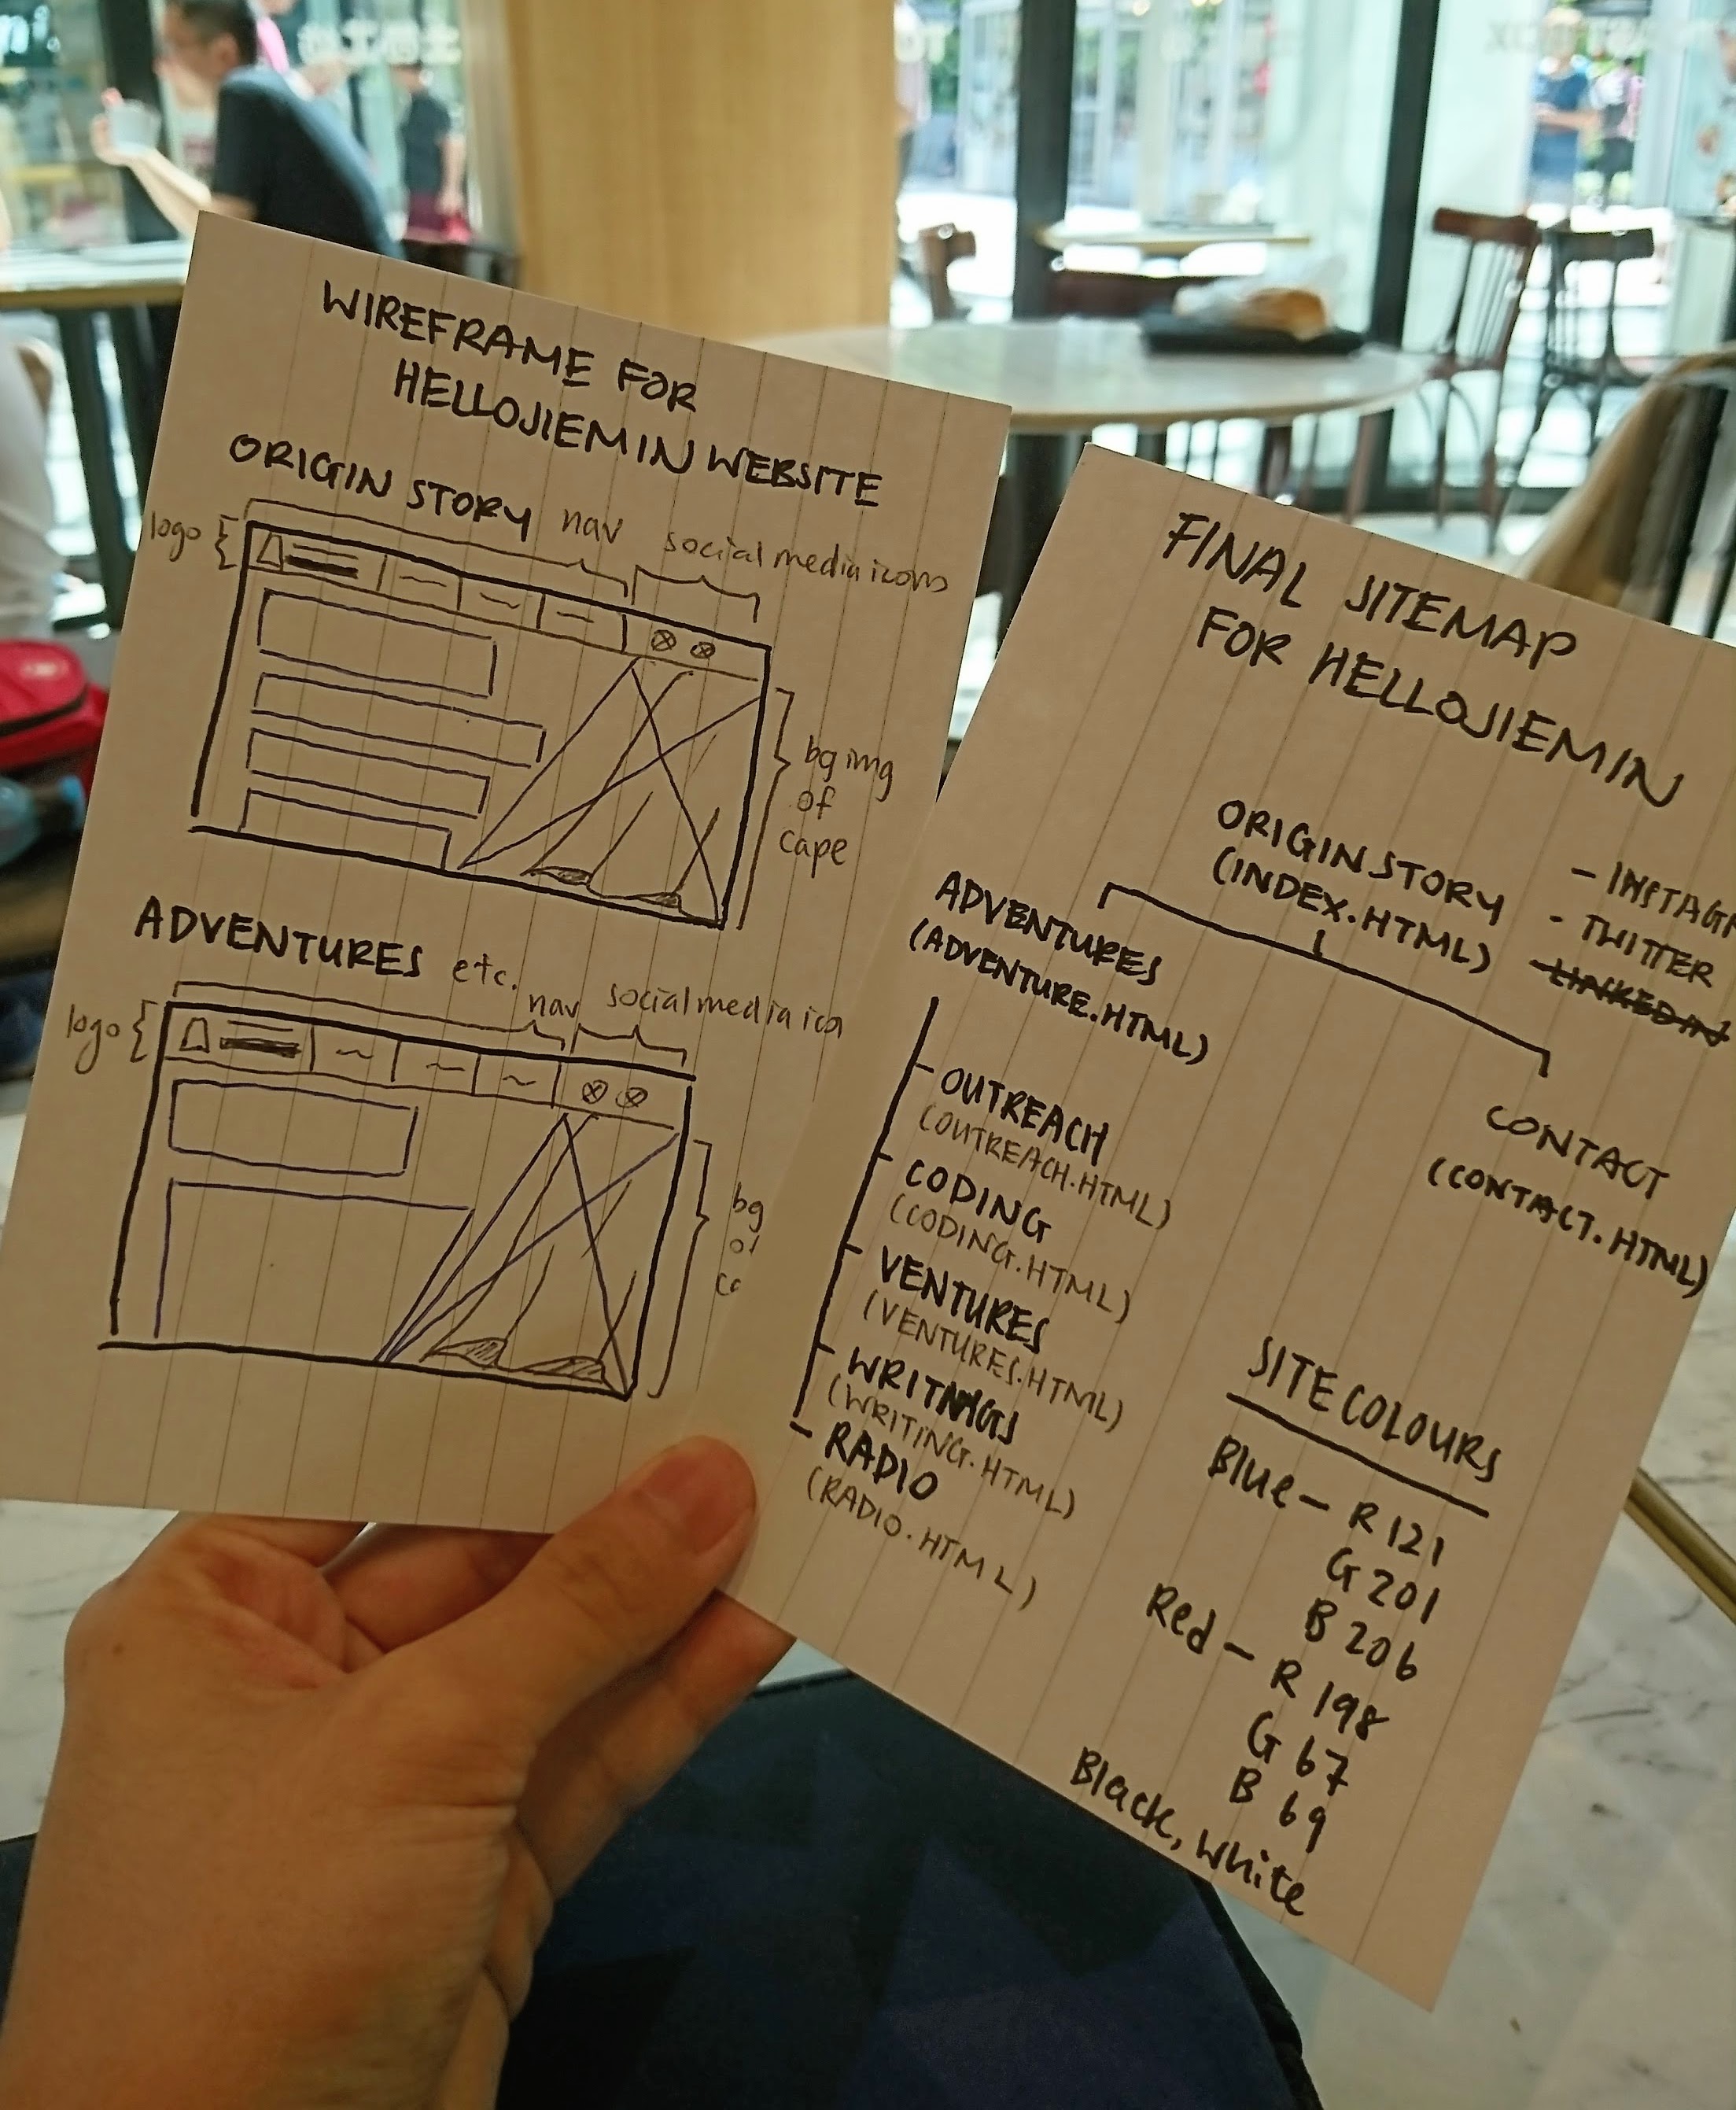 WIREFRAME FOR
HELLOJIEMIN WEBSITE
ORIGIN STORY
nav
social media icons
logo
bg img
of
cape
ADVENTURES etc.
nav
social media ico
logo
bg
FINAL SITEMAP
FOR HELLOJIEMIN
ORIGIN STORY
(INDEX.HTML)
- INSTAG
- TWITTER
- LINKEDIN
ADVENTURES
(ADVENTURE.HTML)
- OUTREACH
(OUTREACH.HTML)
- CODING
(CODING.HTML)
- VENTURES
(VENTURES.HTML)
- WRITINGS
(WRITING.HTML)
- RADIO
(RADIO.HTML)
CONTACT
(CONTACT.HTML)
SITE COLOURS
Blue - R 121
G 201
B 206
Red - R 198
G 67
B 69
Black, white